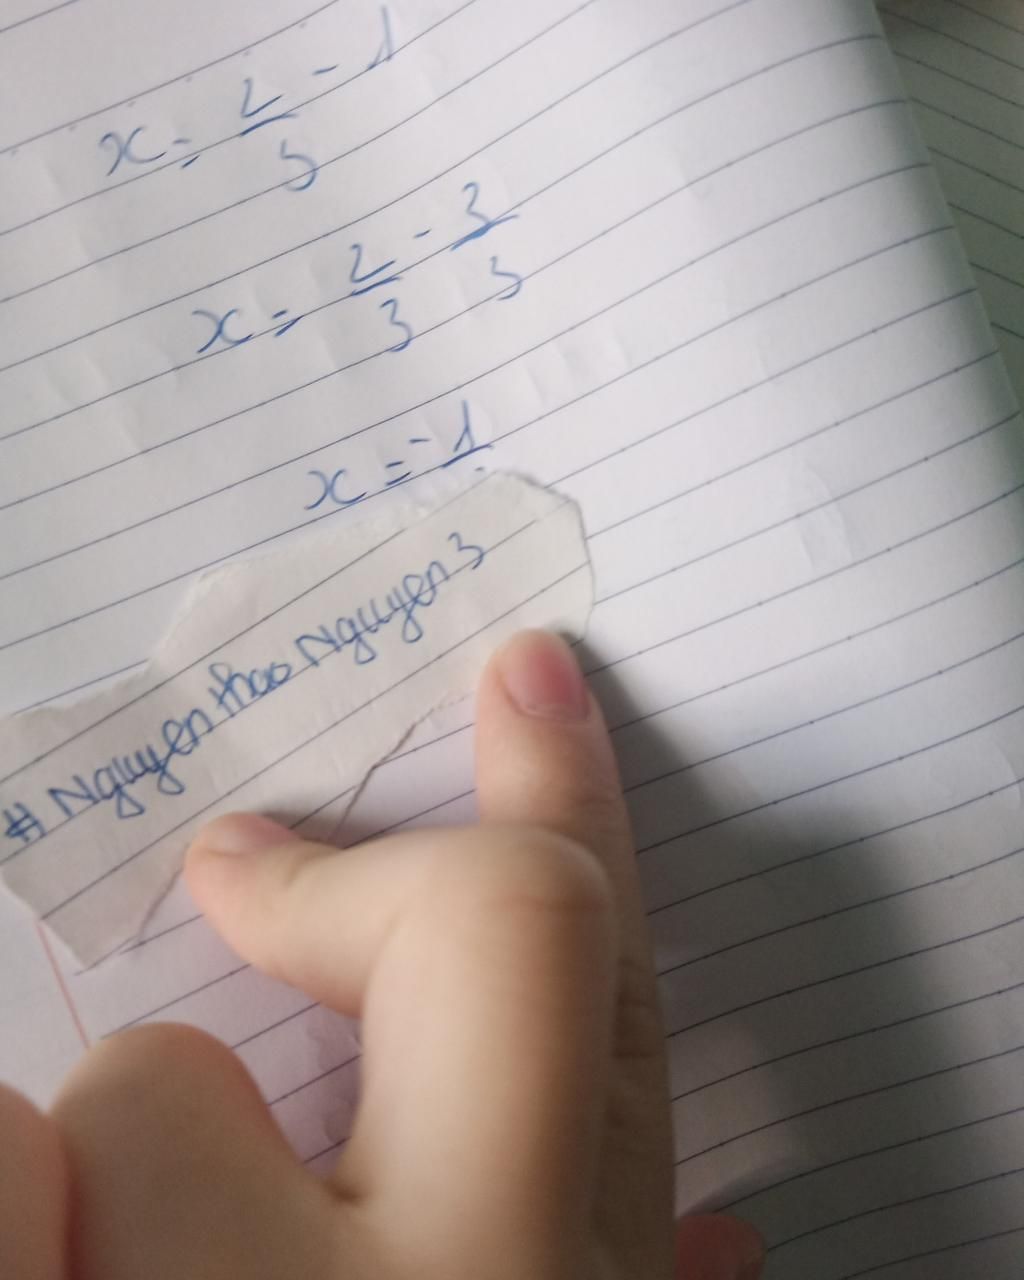 x = 2/3 - 1
x = 2/3 - 3/3
x = -1/
# Nguyenthao Nguyen3